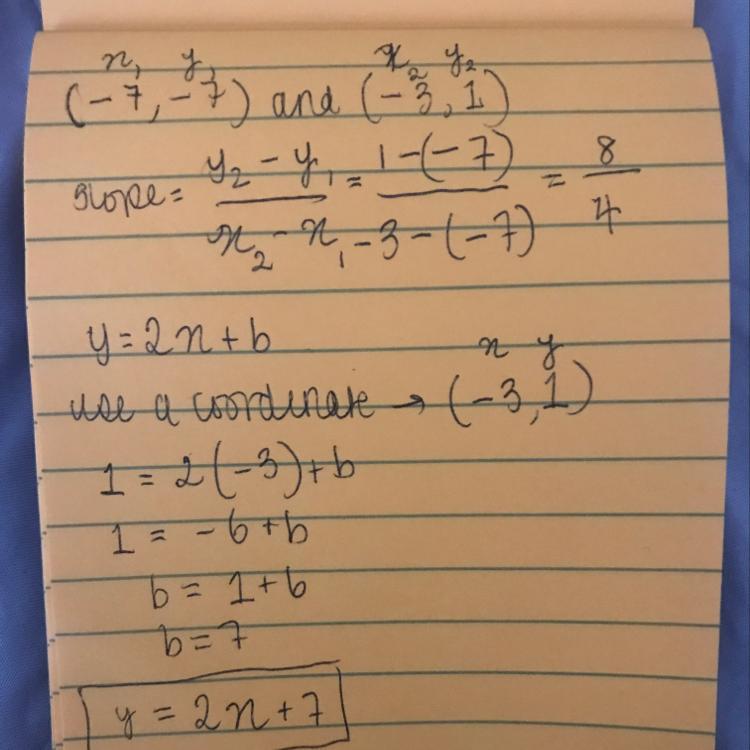 x₁ y₁ x₂ y₂
(-7, -7) and (-3, 1)
slope = (y₂ - y₁)/(x₂ - x₁) = (1-(-7))/(-3-(-7)) = 8/4
y = 2x + b
x y
use a coordinate → (-3, 1)
1 = 2(-3) + b
1 = -6 + b
b = 1 + 6
b = 7
y = 2x + 7